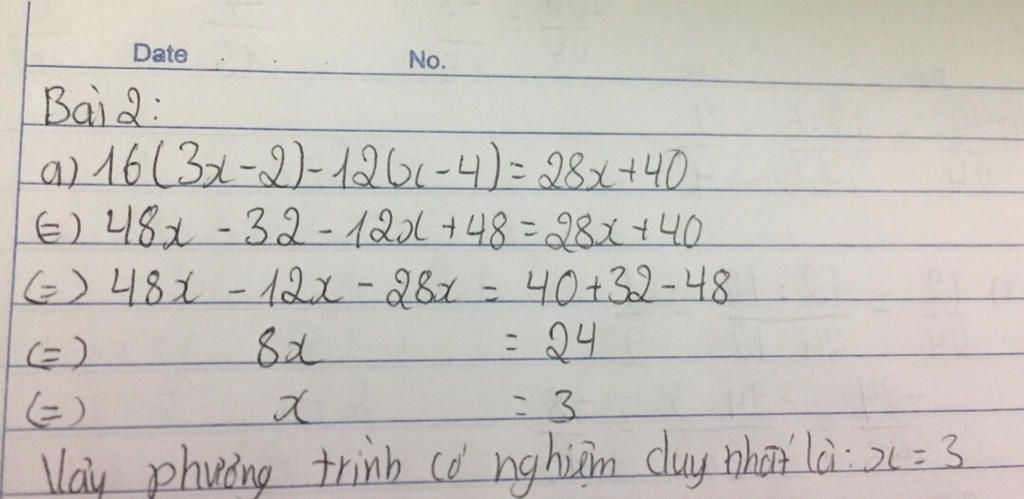 Date No.
Bài 2:
a) 16(3x-2)-12(x-4)=28x+40
(=) 48x - 32 - 12x + 48 = 28x + 40
(=) 48x - 12x - 28x = 40+32-48
(=) 8x = 24
(=) x = 3
Vảy phương trình có nghiệm duy nhất là: x = 3